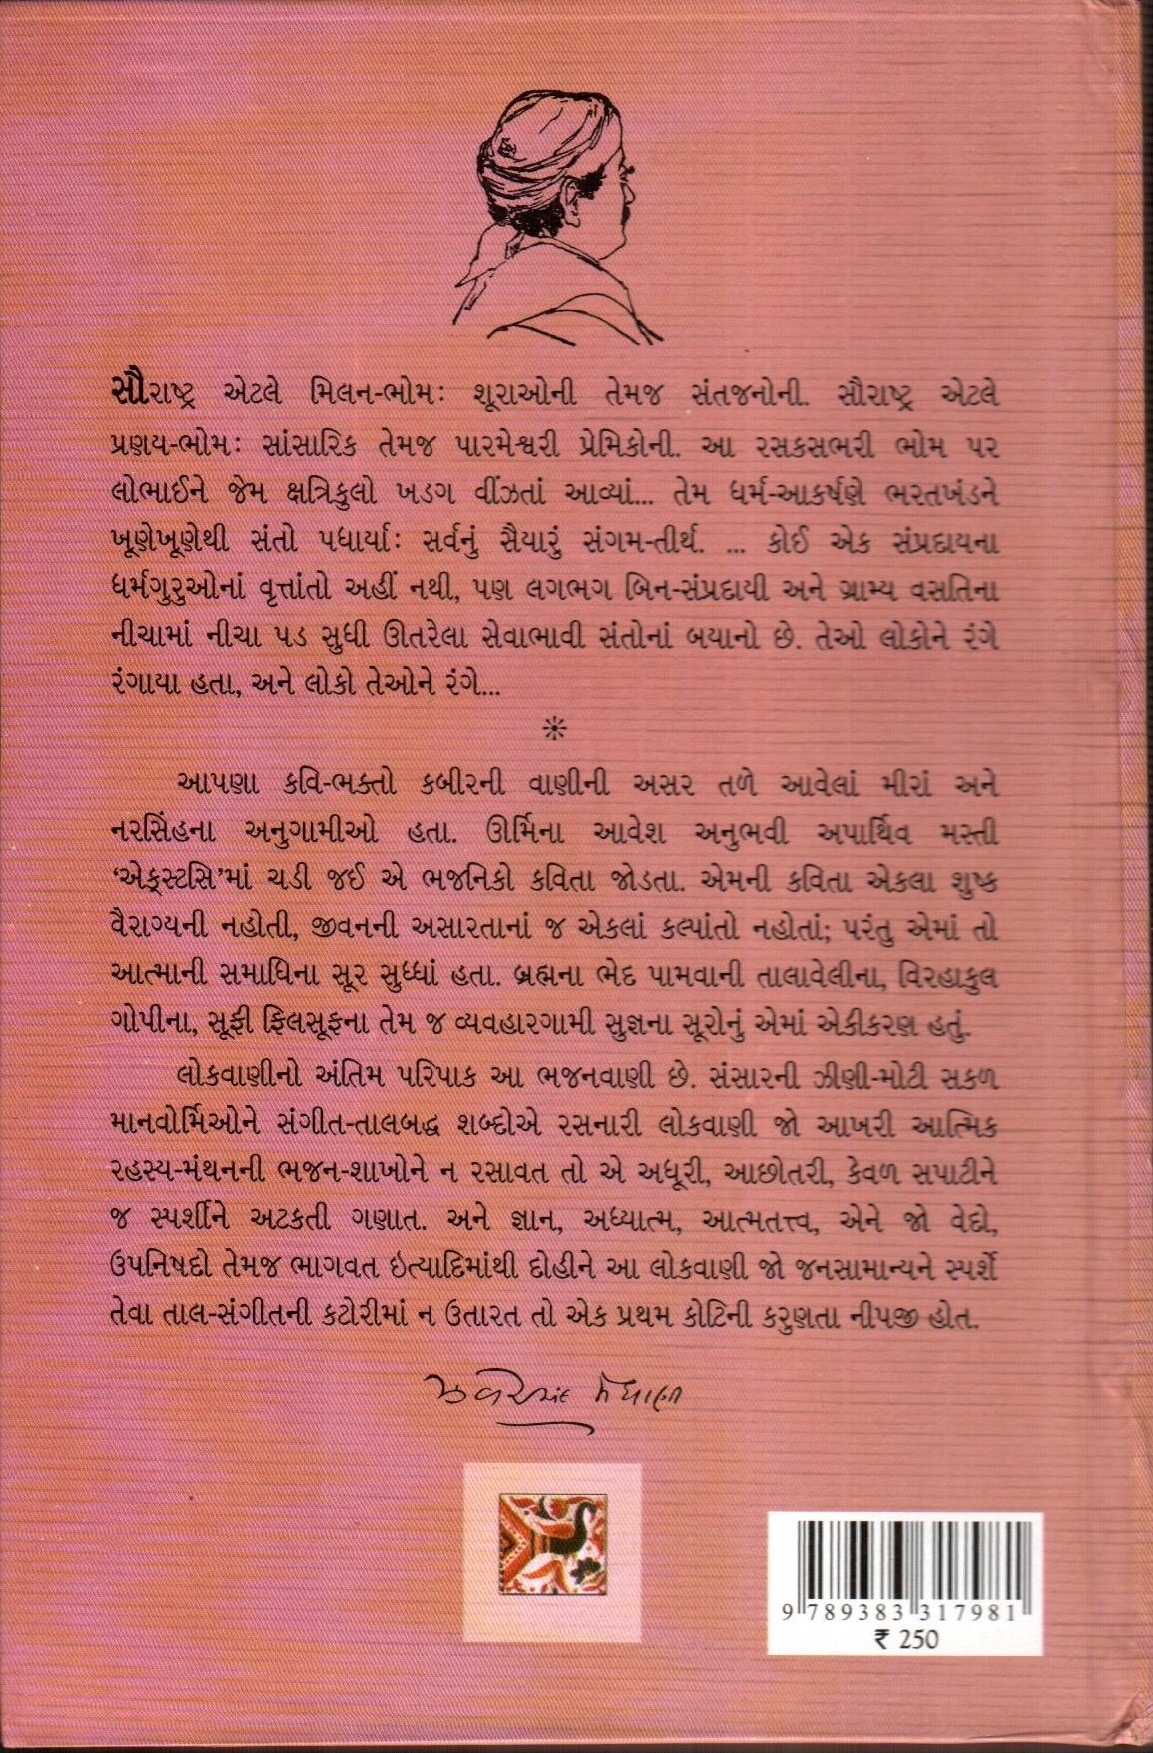 સૌરાષ્ટ્ર એટલે મિલન-ભોમઃ શૂરાઓની તેમજ સંતજનોની. સૌરાષ્ટ્ર એટલે
પ્રણય-ભોમઃ સાંસારિક તેમજ પારમેશ્વરી પ્રેમિકોની. આ રસકસભરી ભોમ પર
લોભાઈને જેમ ક્ષત્રિકુલો ખડગ વીંઝતાં આવ્યાં... તેમ ધર્મ-આકર્ષણે ભરતખંડને
ખૂણેખૂણેથી સંતો પધાર્યાઃ સર્વનું સૈયારું સંગમ-તીર્થ. ... કોઈ એક સંપ્રદાયના
ધર્મગુરુઓનાં વૃત્તાંતો અહીં નથી, પણ લગભગ બિન-સંપ્રદાયી અને ગ્રામ્ય વસતિના
નીચામાં નીચા પડ સુધી ઊતરેલા સેવાભાવી સંતોનાં બયાનો છે. તેઓ લોકોને રંગે
રંગાયા હતા, અને લોકો તેઓને રંગે...
આપણા કવિ-ભક્તો કબીરની વાણીની અસર તળે આવેલાં મીરાં અને
નરસિંહના અનુગામીઓ હતા. ઊર્મિના આવેશ અનુભવી અપાર્થિવ મસ્તી
‘એક્સ્ટસિ’માં ચડી જઈ એ ભજનિકો કવિતા જોડતા. એમની કવિતા એકલા શુષ્ક
વૈરાગ્યની નહોતી, જીવનની અસારતાનાં જ એકલાં કલ્પાંતો નહોતાં; પરંતુ એમાં તો
આત્માની સમાધિના સૂર સુધ્ધાં હતા. બ્રહ્મના ભેદ પામવાની તાલાવેલીના, વિરહાકુલ
ગોપીના, સૂફી ફિલસૂફના તેમ જ વ્યવહારગામી સુજ્ઞના સૂરોનું એમાં એકીકરણ હતું.
લોકવાણીનો અંતિમ પરિપાક આ ભજનવાણી છે. સંસારની ઝીણી-મોટી સકળ
માનવોર્મિઓને સંગીત-તાલબદ્ધ શબ્દોએ રસનારી લોકવાણી જો આખરી આત્મિક
રહસ્ય-મંથનની ભજન-શાખોને ન રસાવત તો એ અધૂરી, આછોતરી, કેવળ સપાટીને
જ સ્પર્શીને અટકતી ગણાત. અને જ્ઞાન, અધ્યાત્મ, આત્મતત્ત્વ, એને જો વેદો,
ઉપનિષદો તેમજ ભાગવત ઇત્યાદિમાંથી દોહીને આ લોકવાણી જો જનસામાન્યને સ્પર્શે
તેવા તાલ-સંગીતની કટોરીમાં ન ઉતારત તો એક પ્રથમ કોટિની કરુણતા નીપજી હોત.
ઝવેરચંદ મેઘાણી
9 789383 317981
₹ 250